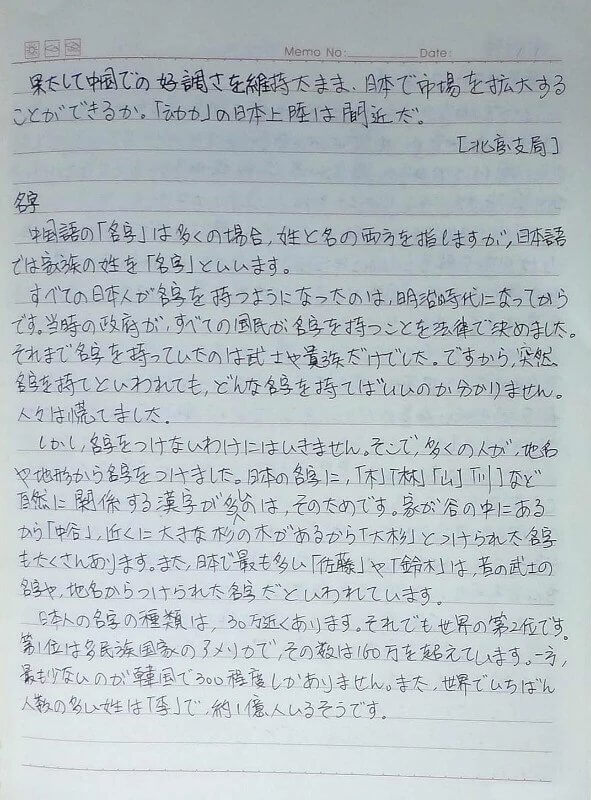 Memo No: Date: / /
果たして中国での好調さを維持たまま、日本で市場を拡大する
ことができるか。「动力」の日本上陸は間近だ。
[北京支局]
名字
中国語の「名字」は多くの場合,姓と名の両方を指しますが,日本語
では家族の姓を「名字」といいます。
すべての日本人が名字を持つようになったのは,明治時代になってから
です。当時の政府が,すべての国民が名字を持つことを法律で決めました。
それまで名字を持っていたのは武士や貴族だけでした。ですから,突然
名字を持てといわれても,どんな名字を持てばいいのか分かりません。
人々は慌てました。
しかし,名字をつけないわけにはいきません。そこで,多くの人が,地名
や地形から名字をつけました。日本の名字に,「木」「林」「山」「川」など
自然に関係する漢字が多いのは,そのためです。家が谷の中にある
から「中谷」,近くに大きな杉の木があるから「大杉」とつけられた名字
もたくさんあります。また,日本で最も多い「佐藤」や「鈴木」は,昔の武士の
名字や,地名からつけられた名字だといわれています。
日本人の名字の種類は,30万近くあります。それでも世界の第2位です。
第1位は多民族国家のアメリカで,その数は160万を超えています。一方,
最も少ないのが韓国で300程度しかありません。また,世界でいちばん
人数の多い姓は「李」で,約1億人いるそうです。